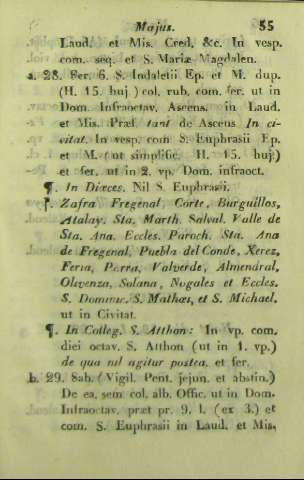 Majus. 55
Laud. et Mis. Cred. &c. In vesp.
com. seq. et S. Mariæ Magdalen.
a. 28. Fer. 6. S. Indaletii Ep. et M. dup.
(H. 15. huj.) col. rub. com. fer. ut in
Dom. Infraoctav. Ascens. in Laud.
et Mis. Præf. tant. de Ascens In ci-
vitat. In vesp. com S. Euphrasii Ep.
et M. (ut simplific. H. 15. huj.)
et fer. ut in 2. vp. Dom. infraoct.
¶. In Diœces. Nil S. Euphrasii.
Zafra Fregenal, Corte, Burguillos,
Atalay. Sta. Marth. Salval. Valle de
Sta. Ana. Eccles. Paroch. Sta. Ana
de Fregenal, Puebla del Conde, Xerez,
Feria, Parra, Valverde, Almendral,
Olivenza, Solana, Nogales et Eccles.
S. Dominic. S. Mathæi, et S. Michael.
ut in Civitat.
¶. In Colleg. S. Atthon: In vp. com.
diei octav. S. Atthon (ut in 1. vp.)
de qua nil agitur postea. et fer.
b. 29. Sab. (Vigil. Pent. jejun. et abstin.)
De ea. sem. col. alb. Offic. ut in Dom.
Infraoctav. præt pr. 9. l. (ex 3.) et
com. S. Euphrasii in Laud. et Mis.